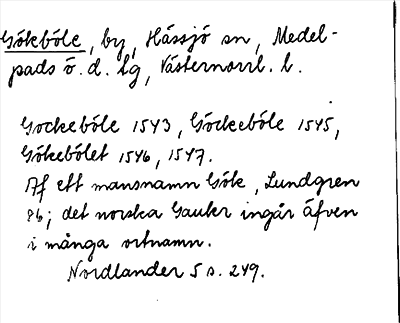 Gökeböle, by, Hässjö sn, Medel-
pads ö. d. lg, Västernorrl. l.
Gockeböle 1543, Göckeböle 1545,
Gökebölet 1546, 1547.
Af ett mansnamn Gök, Lundgren
86; det norska Gauker ingår äfven
i många ortnamn.
Nordlander 5 s. 249.